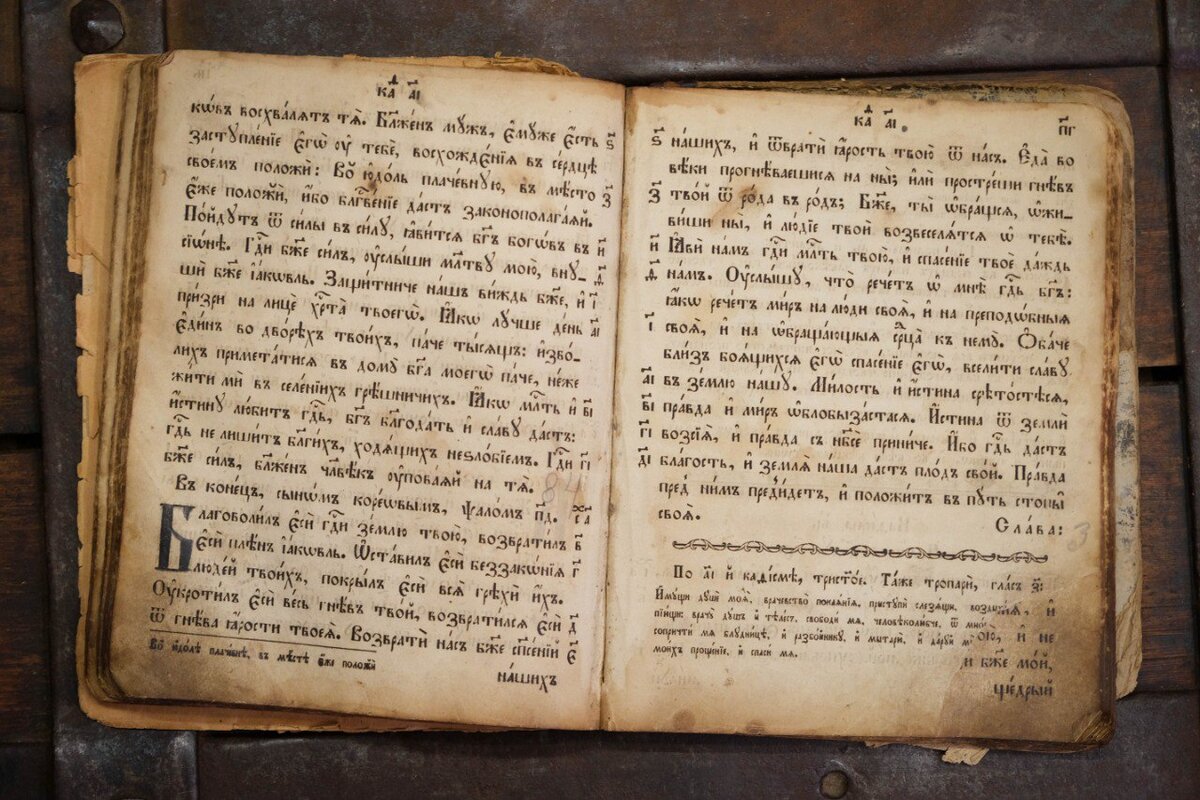 ка҃ аі҃
кѡ́въ восхва́лѧтъ тѧ̀. Бл҃же́нъ мꙋ́жъ, є҆мꙋ́же є҆́сть ѕ҃
застꙋпле́нїе є҆гѡ̀ ᲂу҆ тебє̀, восхождє́нїѧ въ се́рдцѣ
свое́мъ положѝ: Во ю҆до́ль плаче́внꙋю, въ мѣ́сто з҃
є҆́же положѝ, и҆́бо блгⷭ҇ве́нїе да́стъ законополага́ѧй.
По́йдꙋтъ ѿ си́лы въ си́лꙋ, ꙗ҆ви́тсѧ бг҃ъ богѡ́въ въ и҃
сїѡ́нѣ. Гдⷭ҇и бж҃е си́лъ, ᲂу҆слы́ши мл҃твꙋ мою̀, внꙋ- ѳ҃
шѝ бж҃е і҆а́кѡвль. Защи́тниче на́шъ ви́ждь бж҃е, и҆ і҃
при́зри на лицѐ хрⷭ҇та̀ твоегѡ̀. Ꙗ҆́кѡ лꙋ́чше де́нь аі҃
є҆ди́нъ во дво́рѣхъ твои́хъ, па́че ты́сѧщъ: и҆зво́-
лихъ примета́тисѧ въ домꙋ̀ бг҃а моегѡ̀ па́че, не́же
жи́ти мѝ въ селе́нїихъ грѣ́шничихъ. Ꙗ҆́кѡ млⷭ҇ть и҆ ві҃
и҆́стинꙋ лю́битъ гдⷭ҇ь, бг҃ъ благода́ть и҆ сла́вꙋ да́стъ:
гдⷭ҇ь не лиши́тъ бл҃ги́хъ, ходѧ́щихъ неѕло́бїемъ. Гдⷭ҇и гі҃
бж҃е си́лъ, бл҃же́нъ чл҃вѣ́къ ᲂу҆пова́ѧй на тѧ̀.
Въ коне́цъ, сынѡ́мъ коре́ѡвымъ, ѱало́мъ пд҃. а҃
Благоволи́лъ є҆сѝ гдⷭ҇и зе́млю твою̀, возврати́лъ в҃
є҆сѝ плѣ́нъ і҆а́кѡвль. Ѡ҆ста́вилъ є҆сѝ беззакѡ́нїѧ г҃
люде́й твои́хъ, покры́лъ є҆сѝ всѧ̀ грѣхѝ и҆́хъ.
Оу҆кроти́лъ є҆сѝ ве́сь гнѣ́въ тво́й, возврати́лсѧ є҆сѝ д҃
ѿ гнѣ́ва ꙗ҆́рости твоеѧ̀. Возвратѝ на́съ бж҃е спⷭ҇е́нїй є҃
Во ю҆до́лѣ плаче́внѣ, въ мѣ́стѣ є҆́же положѝ
на́шихъ
ка҃ аі҃ пг҃
ѕ҃ на́шихъ, и҆ ѿвратѝ ꙗ҆́рость твою̀ ѿ на́съ. Є҆да̀ во
вѣ́ки прогнѣ́ваешисѧ на ны̀; и҆лѝ простре́ши гнѣ́въ
з҃ тво́й ѿ ро́да въ ро́дъ; Бж҃е, ты̀ ѡ҆бра́щсѧ, ѡ҆жи-
ви́ши ны̀, и҆ лю́дїе твоѝ возвеселѧ́тсѧ ѡ҆ тебѣ̀.
и҃ Ꙗ҆вѝ на́мъ гдⷭ҇и млⷭ҇ть твою̀, и҆ спасе́нїе твоѐ да́ждь
ѳ҃ на́мъ. Оу҆слы́шꙋ, что̀ рече́тъ ѡ҆ мнѣ̀ гдⷭ҇ь бг҃ъ:
ꙗ҆́кѡ рече́тъ ми́ръ на лю́ди своѧ̀, и҆ на преподѡ́бныѧ
і҃ своѧ̀, и҆ на ѡ҆браща́ющыѧ срⷣца̀ къ немꙋ̀. Ѻ҆ба́че
бли́зъ боѧ́щихсѧ є҆гѡ̀ спасе́нїе є҆гѡ̀, всели́ти сла́вꙋ
аі҃ въ зе́млю на́шꙋ. Ми́лость и҆ и҆́стина срѣто́стѣсѧ,
ві҃ пра́вда и҆ ми́ръ ѡ҆блобыза́стасѧ. И҆́стина ѿ землѝ
гі҃ возсїѧ̀, и҆ пра́вда съ нб҃сѐ прини́че. И҆́бо гдⷭ҇ь да́стъ
ді҃ бла́гость, и҆ землѧ̀ на́ша да́стъ пло́дъ сво́й. Пра́вда
пред ни́мъ пред̾и́детъ, и҆ положи́тъ въ пꙋ́ть стопы̀
своѧ̀.
Сла́ва:
По аі҃ й каѳі́смѣ, трист҃о́е. Та́же тропарѝ, гла́съ з҃:
И҆мꙋ́щи дꙋшѐ моѧ̀, врачевство̀ покаѧ́нїѧ, пристꙋпѝ слезѧ́щи, и҆
пїю́щи: врачꙋ̀ дꙋ́шъ и҆ тѣле́съ, свободѝ мѧ̀, человѣколю́бче, ѿ
сопричтѝ мѧ̀ блꙋдни́цѣ, и҆ разбо́йникꙋ, и҆ мытарѝ, и҆ да́рꙋй и҆ не
мои́хъ проще́нїе, и҆ спаси́ мѧ. и҆ бж҃е мо́й,
ще́дрый